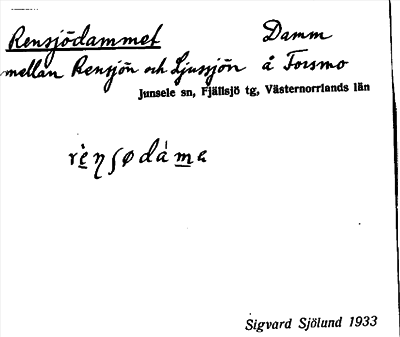 Rensjödammet Damm
mellan Rensjön och Ljussjön å Forsmo
Junsele sn, Fjällsjö tg, Västernorrlands län
Sigvard Sjölund 1933